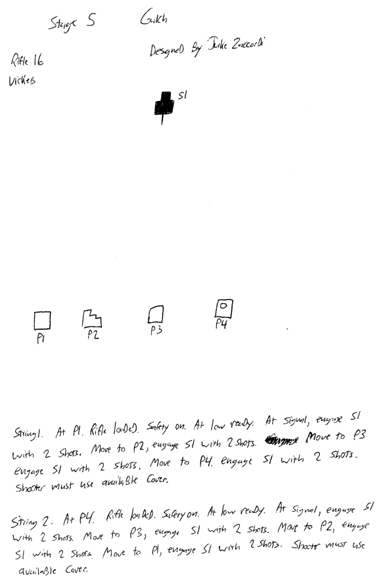 Stage 5 Gulch
Designed By Julie Zaccardi
Rifle 16
Vickers
S1
P1 P2 P3 P4
String 1. At P1. Rifle loaded. Safety on. At low ready. At signal, engage S1
with 2 shots. Move to P2, engage S1 with 2 shots. Move to P3
engage S1 with 2 shots. Move to P4. engage S1 with 2 shots.
Shooter must use available Cover.
String 2. At P4. Rifle loaded. Safety on. At low ready. At Signal, engage S1
with 2 shots. Move to P3, engage S1 with 2 shots. Move to P2, engage
S1 with 2 shots. Move to P1, engage S1 with 2 shots. Shooter must use
available Cover.